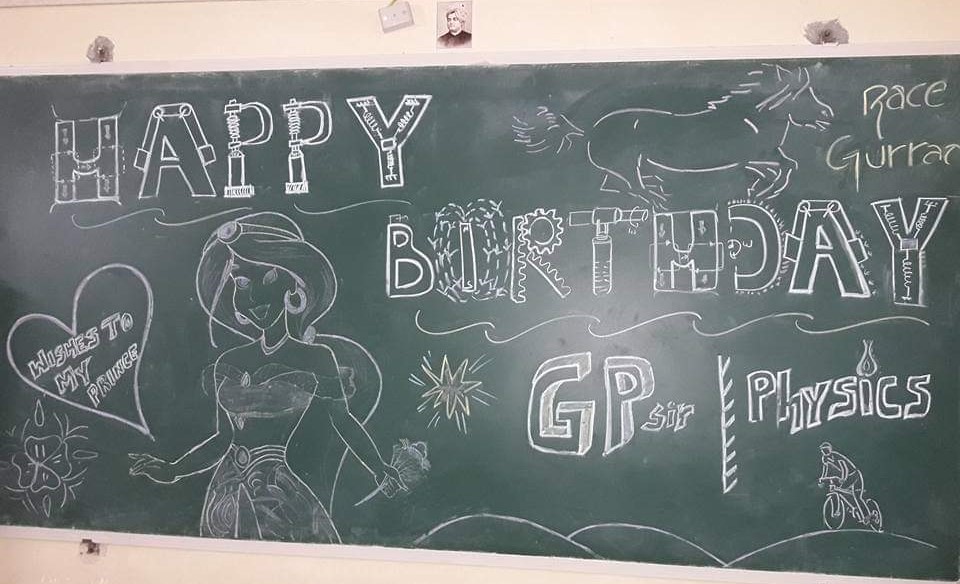 HAPPY
Race
Gurrac
BIRTHDAY
WISHES TO
MY
PRINCE
GP sir
PHYSICS